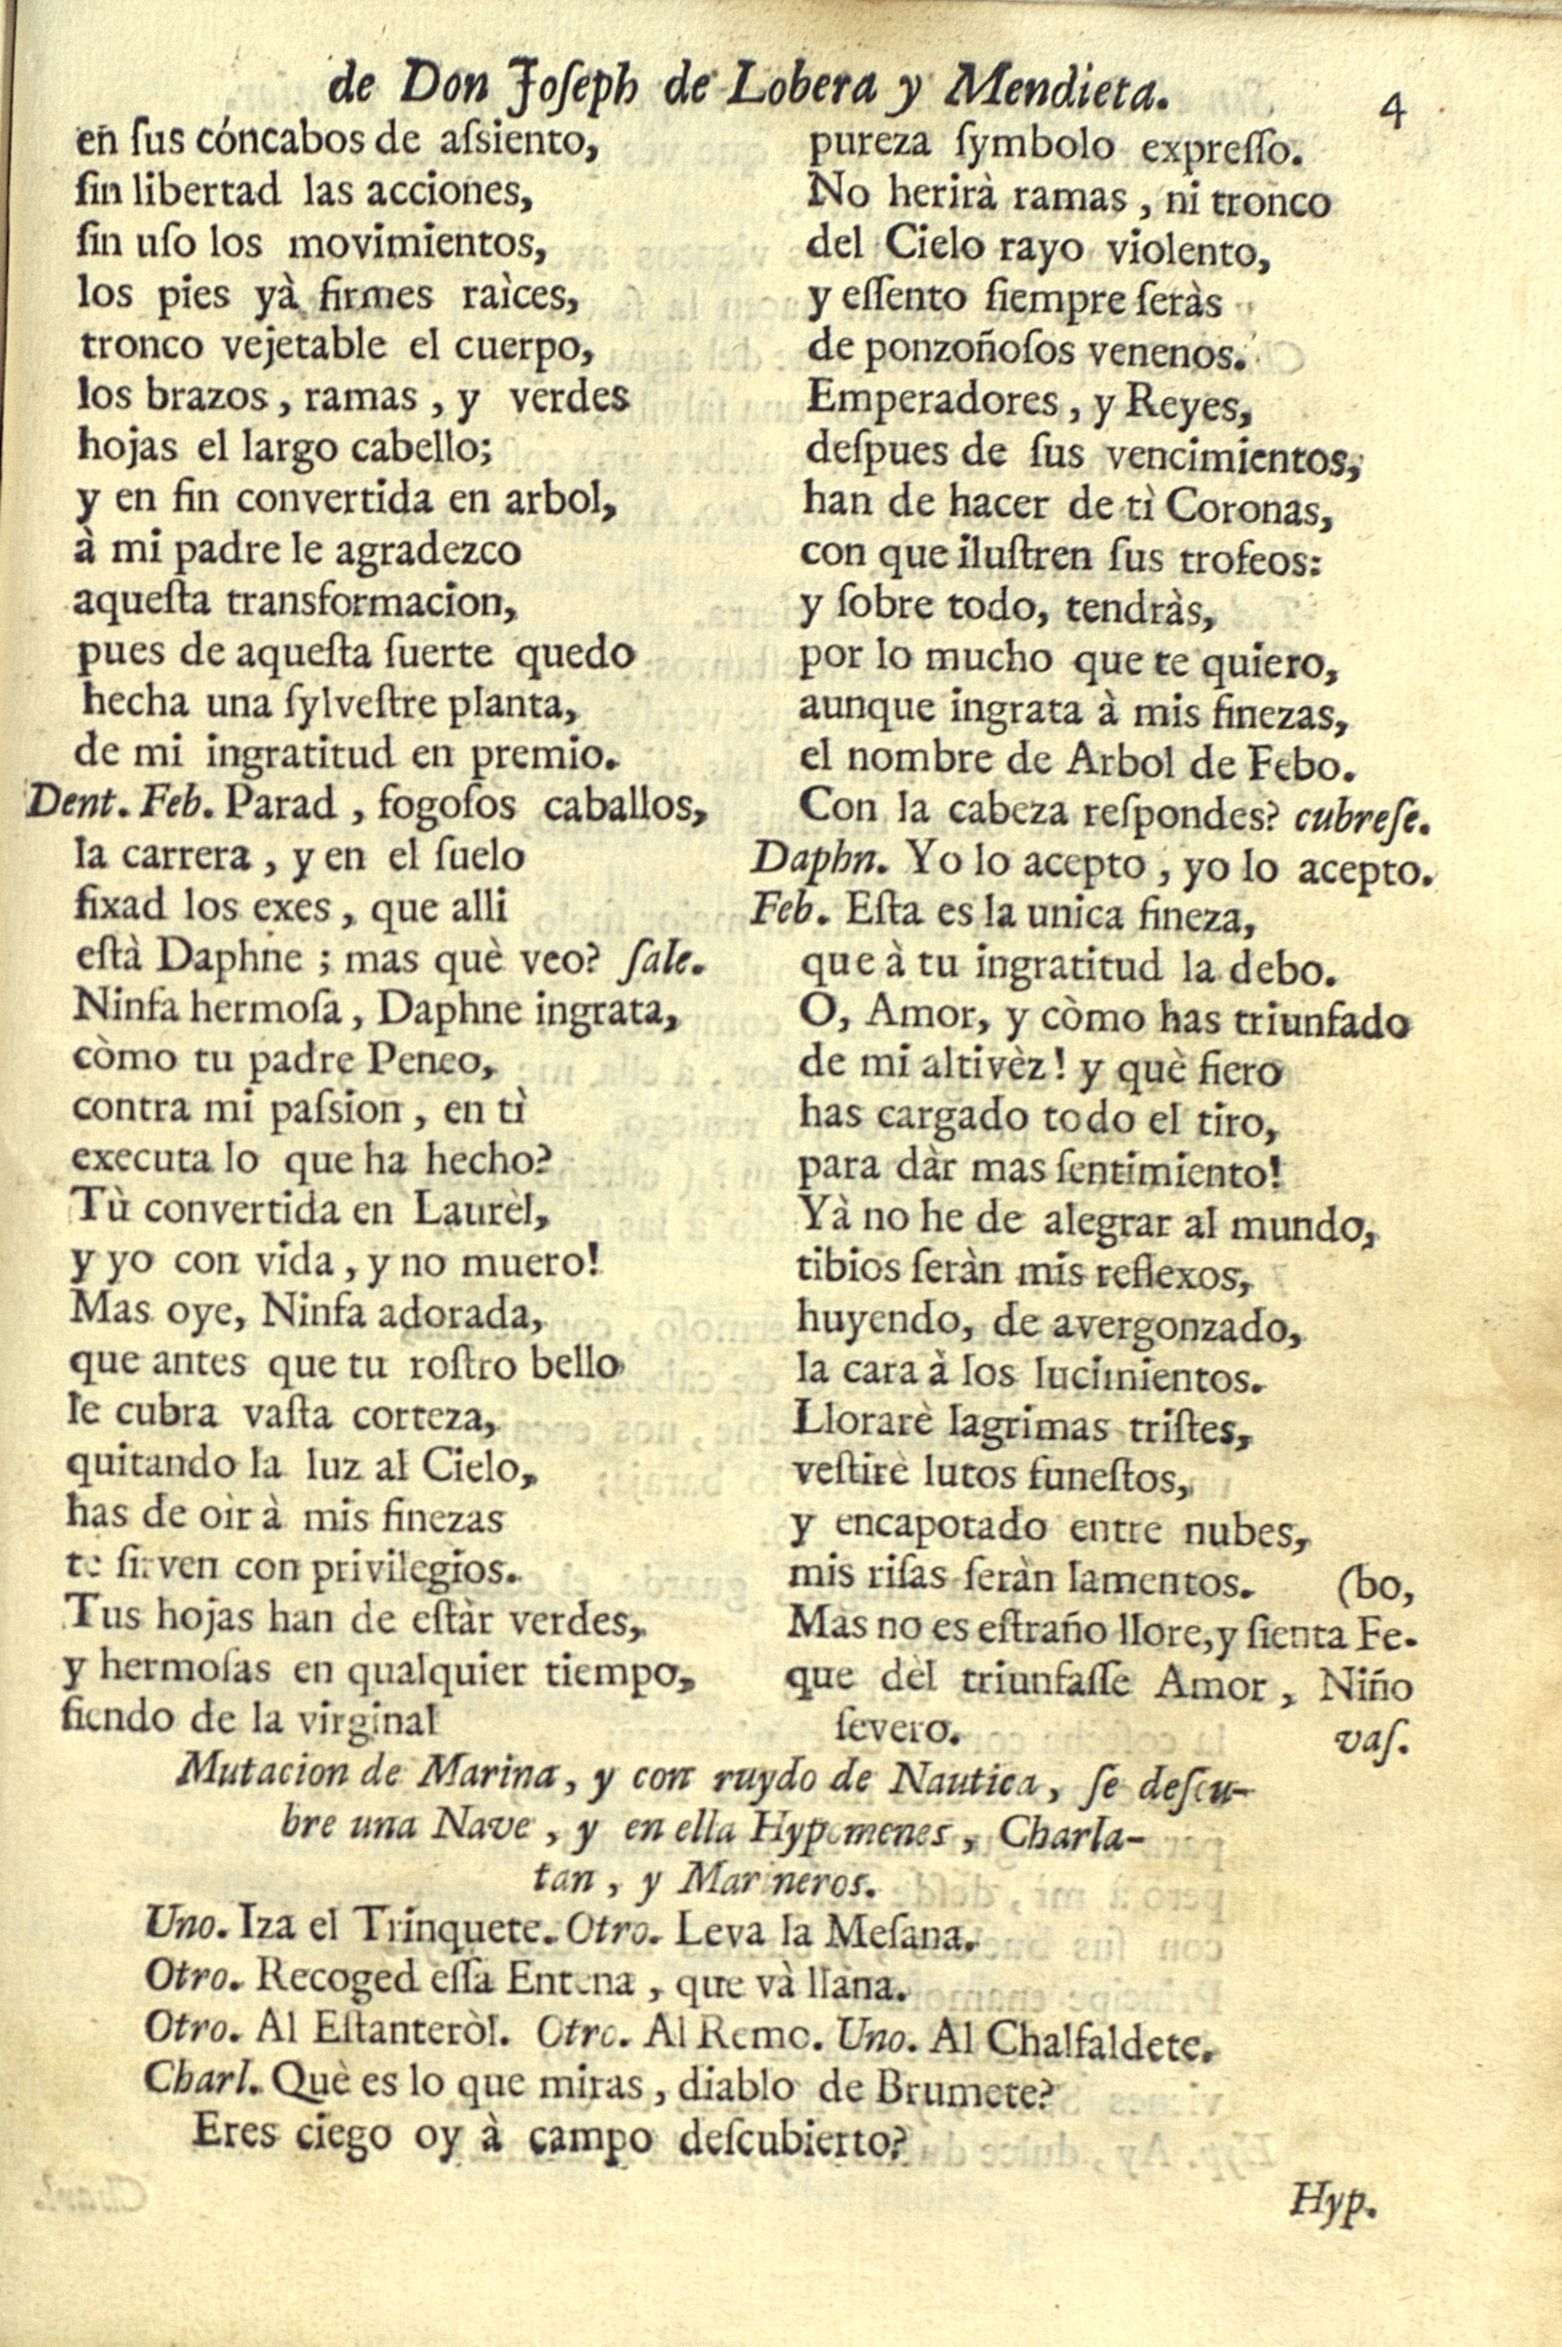 de Don Joſeph de Lobera y Mendieta.
4
en ſus cóncabos de aſsiento,
ſin libertad las acciones,
ſin uſo los movimientos,
los pies yà firmes raìces,
tronco vejetable el cuerpo,
los brazos, ramas, y verdes
hojas el largo cabello;
y en fin convertida en arbol,
à mi padre le agradezco
aqueſta transformacion,
pues de aqueſta ſuerte quedo
hecha una ſylveſtre planta,
de mi ingratitud en premio.
Dent. Feb. Parad, fogoſos caballos,
la carrera, y en el ſuelo
fixad los exes, que alli
eſtà Daphne; mas què veo? ſale.
Ninfa hermoſa, Daphne ingrata,
còmo tu padre Peneo,
contra mi paſsion, en tì
executa lo que ha hecho?
Tù convertida en Laurèl,
y yo con vida, y no muero!
Mas oye, Ninfa adorada,
que antes que tu roſtro bello
le cubra vaſta corteza,
quitando la luz al Cielo,
has de oìr à mis finezas
te ſirven con privilegios.
Tus hojas han de eſtàr verdes,
y hermoſas en qualquier tiempo,
ſiendo de la virginal
pureza ſymbolo expreſſo.
No herirà ramas, ni tronco
del Cielo rayo violento,
y eſſento ſiempre ſeràs
de ponzoñoſos venenos.
Emperadores, y Reyes,
deſpues de ſus vencimientos,
han de hacer de tì Coronas,
con que iluſtren ſus trofeos:
y ſobre todo, tendràs,
por lo mucho que te quiero,
aunque ingrata à mis finezas,
el nombre de Arbol de Febo.
Con la cabeza reſpondes? cubreſe.
Daphn. Yo lo acepto, yo lo acepto.
Feb. Eſta es la unica fineza,
que à tu ingratitud la debo.
O, Amor, y còmo has triunfado
de mi altivèz! y què fiero
has cargado todo el tiro,
para dàr mas ſentimiento!
Yà no he de alegrar al mundo,
tibios ſeràn mis reflexos,
huyendo, de avergonzado,
la cara à los lucimientos.
Llorarè lagrimas triſtes,
veſtirè lutos funeſtos,
y encapotado entre nubes,
mis riſas ſeràn lamentos. (bo,
Mas no es eſtraño llore, y ſienta Fe-
que dèl triunfaſſe Amor, Niño
ſevero. vaſ.
Mutacion de Marina, y con ruydo de Nautica, ſe deſcu-
bre una Nave, y en ella Hypomenes, Charla-
tan, y Marineros.
Uno. Iza el Trinquete. Otro. Leva la Meſana.
Otro. Recoged eſſa Entena, que và llana.
Otro. Al Eſtanteròl. Otro. Al Remo. Uno. Al Chalfaldete.
Charl. Què es lo que miras, diablo de Brumete?
Eres ciego oy à campo deſcubierto?
Hyp.